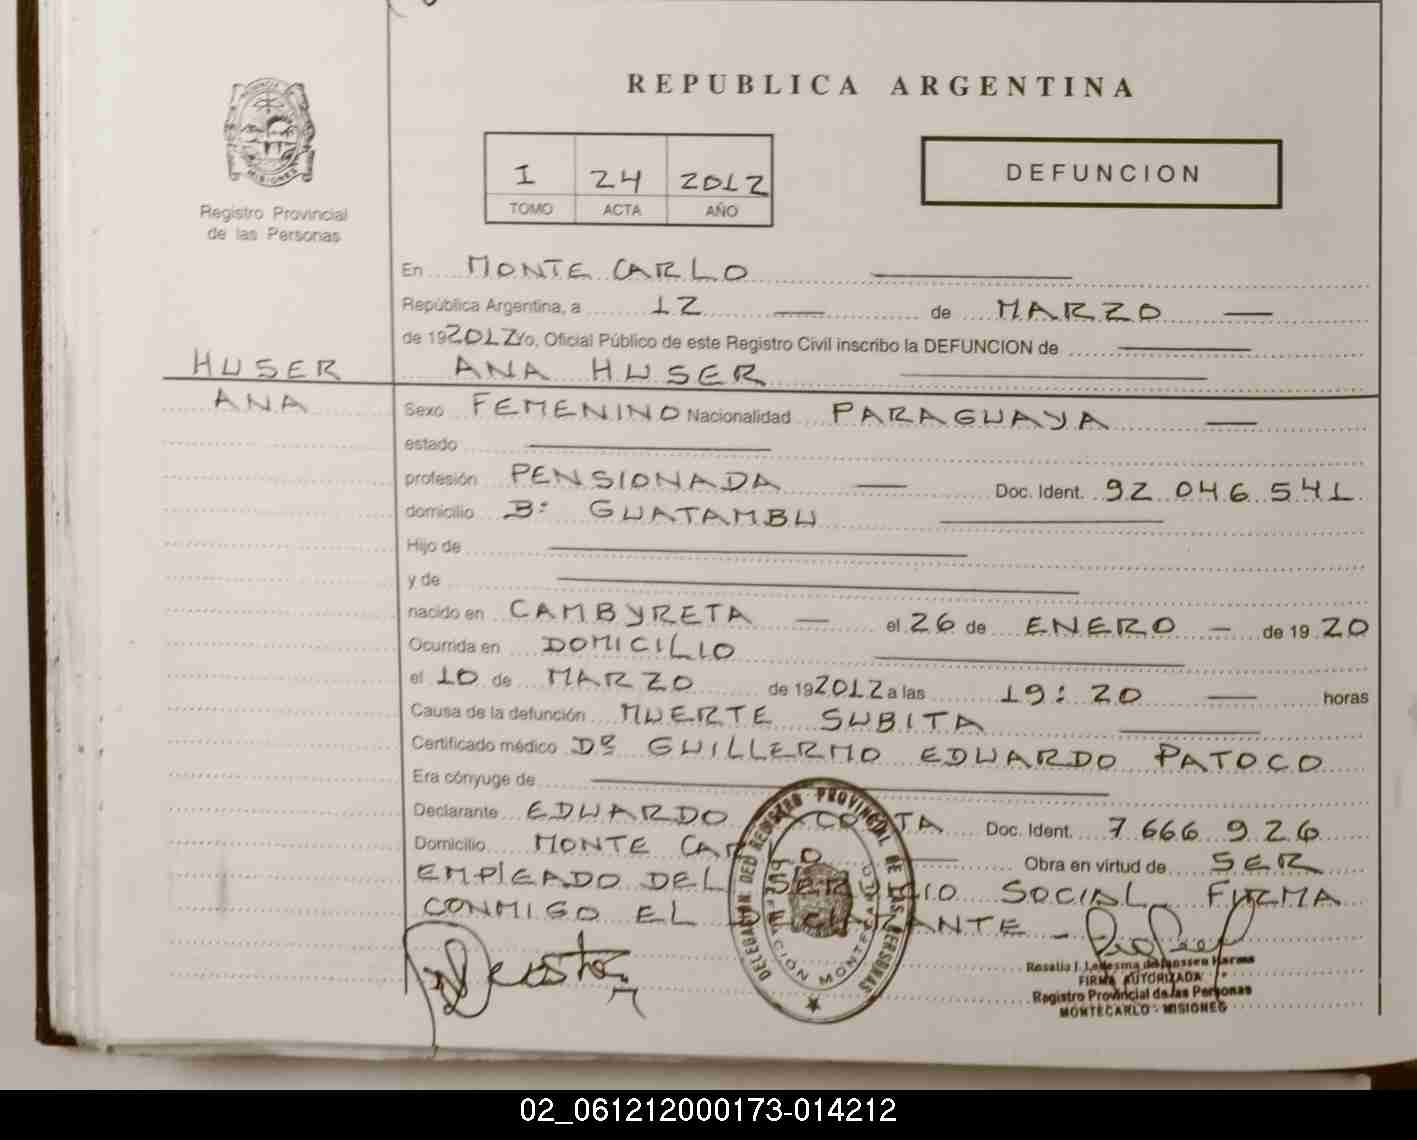 REPUBLICA ARGENTINA
I 24 2012
TOMO ACTA AÑO
DEFUNCION
MISIONES
Registro Provincial
de las Personas
En MONTE CARLO
República Argentina, a 12 de MARZO
de 19 2012 Yo, Oficial Público de este Registro Civil inscribo la DEFUNCION de
HUSER
ANA
ANA HUSER
Sexo FEMENINO Nacionalidad PARAGUAYA
estado
profesión PENSIONADA Doc. Ident. 92 046 541
domicilio Bº GUATAMBU
Hijo de
y de
nacido en CAMBYRETA el 26 de ENERO de 19 20
Ocurrida en DOMICILIO
el 10 de MARZO de 19 2012 a las 19:20 horas
Causa de la defunción MUERTE SUBITA
Certificado médico Dº GUILLERMO EDUARDO PATOCO
Era cónyuge de
Declarante EDUARDO COSTA Doc. Ident. 7 666 926
Domicilio MONTE CARLO Obra en virtud de SER
EMPLEADO DEL SERVICIO SOCIAL FIRMA
CONMIGO EL DECLARANTE
DELEGACION DEL REGISTRO PROVINCIAL DE LAS PERSONAS
Rosalia I. Ledesma de Janssen Harms
FIRMA AUTORIZADA
Registro Provincial de las Personas
MONTECARLO - MISIONES
02_061212000173-014212